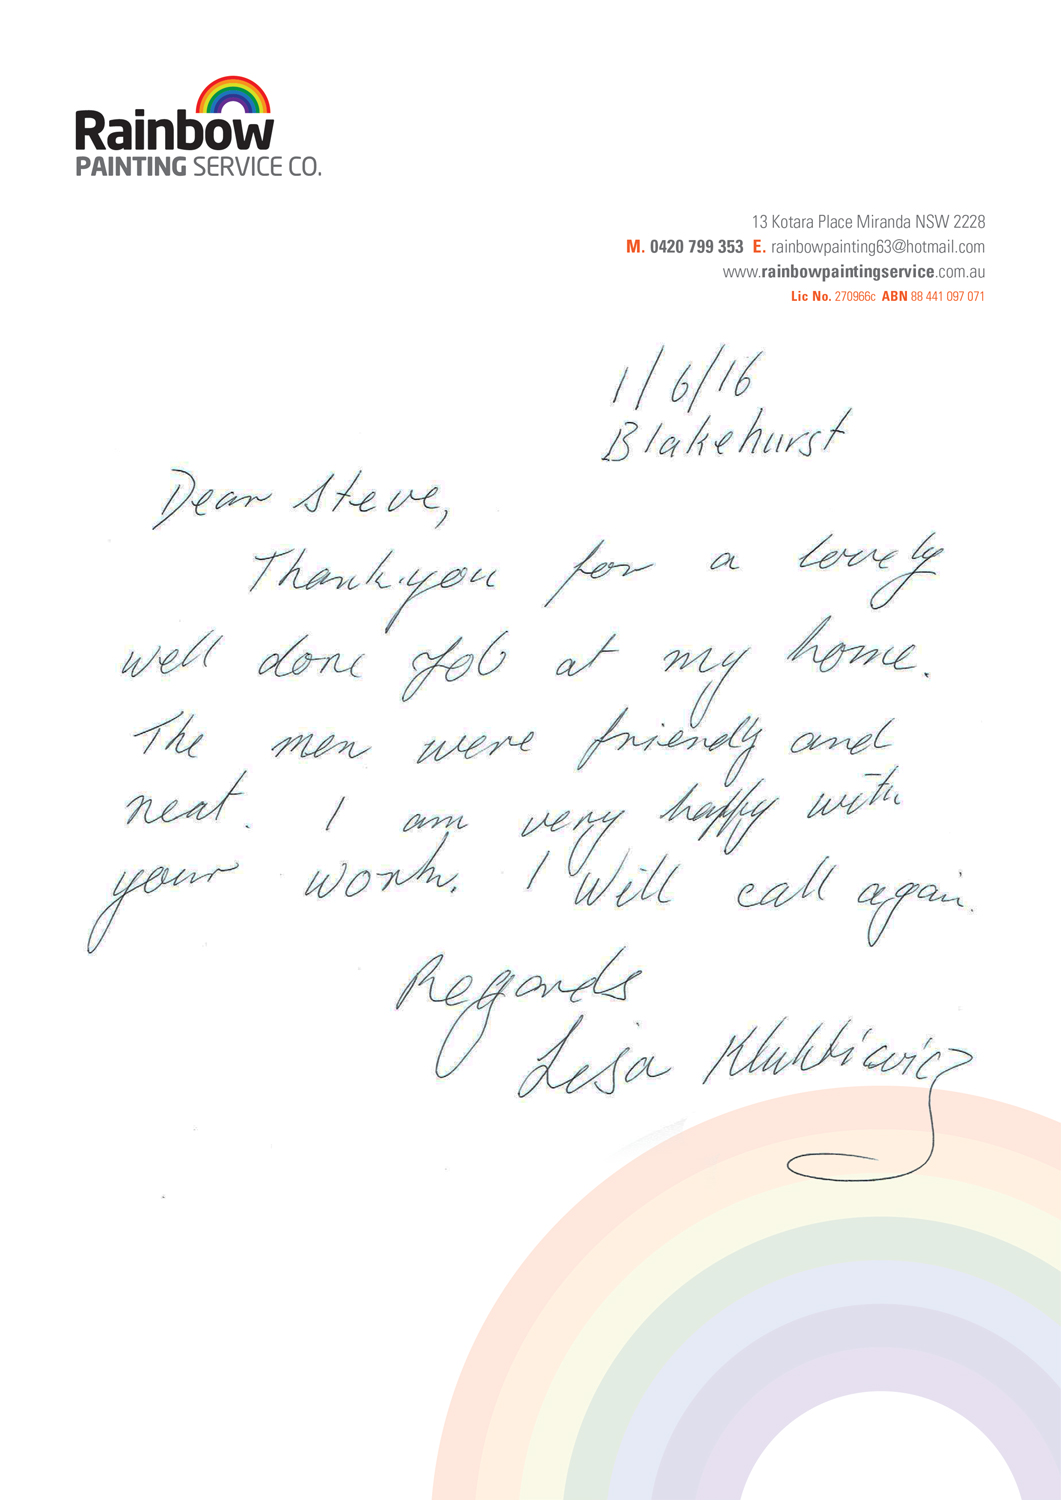 Rainbow
PAINTING SERVICE CO.
13 Kotara Place Miranda NSW 2228
M. 0420 799 353 E. rainbowpainting63@hotmail.com
www.rainbowpaintingservice.com.au
Lic No. 270966c ABN 88 441 097 071
1/6/16
Blakehurst
Dear Steve,
Thank you for a lovely
well done Job at my home.
The men were friendly and
neat. I am very happy with
your work. I Will call again.
Regards
Lisa